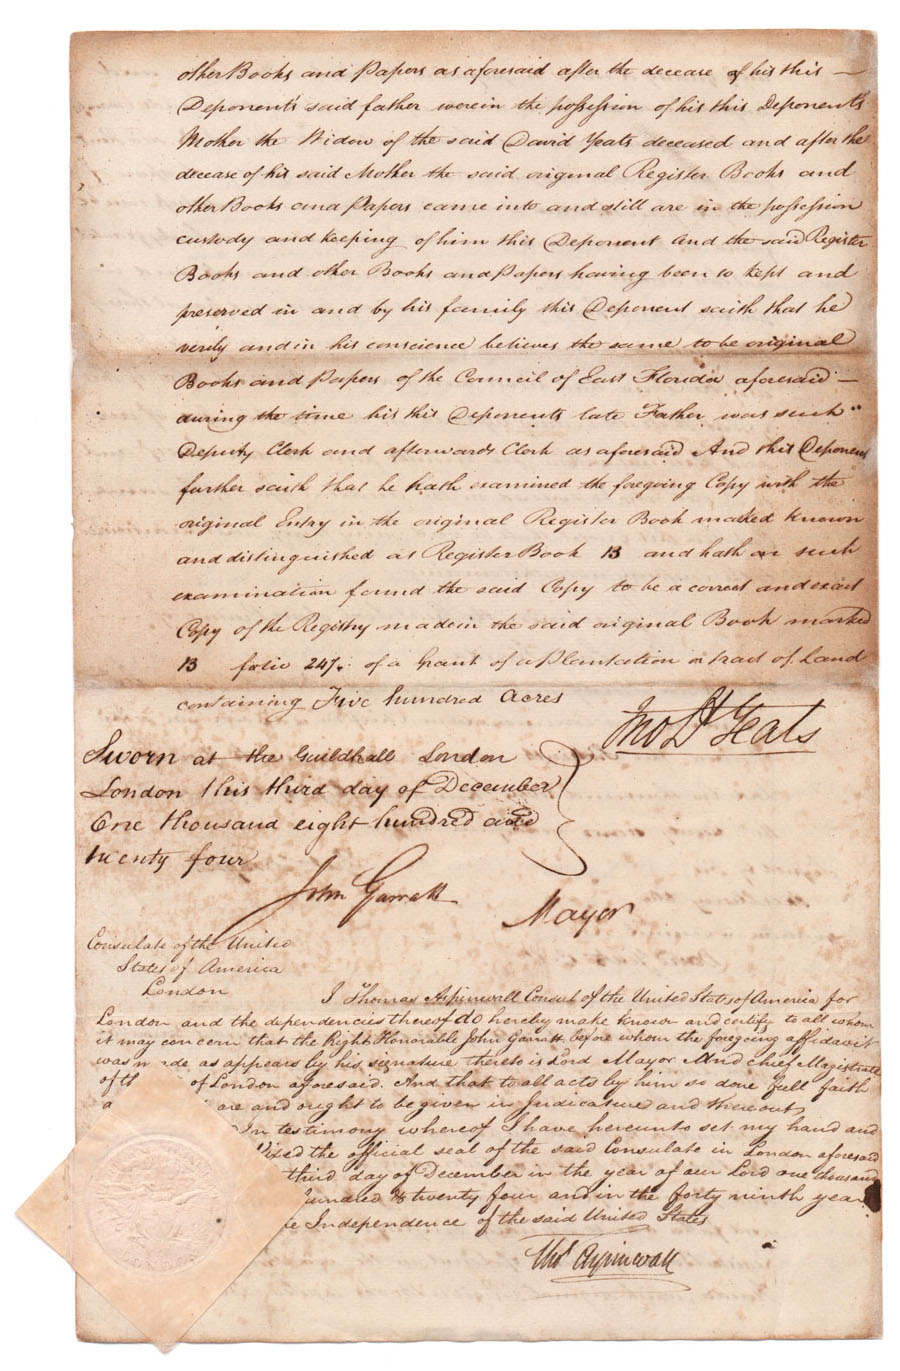 other Books and Papers as aforesaid after the decease of his this —
Deponent's said father were in the possession of his this Deponent's
Mother the Widow of the said David Yeats deceased and after the
decease of his said Mother the said original Register Books and
other Books and Papers came into and still are in the possession
custody and keeping of him this Deponent And the said Register
Books and other Books and Papers having been so kept and
preserved in and by his family this Deponent saith that he
verily and in his conscience believes the same to be original
Books and Papers of the Council of East Florida aforesaid —
during the time his this Deponents late Father was such
Deputy Clerk and afterwards Clerk as aforesaid And this Deponent
further saith that he hath examined the foregoing Copy with the
original Entry in the original Register Book marked known
and distinguished as Register Book B and hath on such
examination found the said Copy to be a correct and exact
Copy of the Registry made in the said original Book marked
B folio 247. of a Grant of a Plantation or tract of Land
containing Five hundred Acres
Sworn at the Guildhall London
London this third day of December
One thousand eight hundred and
twenty four
Yeats
John Garratt
Mayor
Consulate of the United
States of America
London
I Thomas Aspinwall Consul of the United States of America for
London and the dependencies thereof do hereby make known and certify to all whom
it may concern that the Right Honorable John Garratt, before whom the foregoing affidavit
was made as appears by his signature thereto is Lord Mayor And chief Magistrate
of th of London aforesaid. And that to all acts by him so done full faith
are and ought to be given in Judicature and thereout,
In testimony whereof I have hereunto set my hand and
ixed the official seal of the said Consulate in London aforesaid
third day of December in the year of our Lord one thousand
hundred & twenty four and in the forty ninth year
e Independence of the said United States
Thos Aspinwall